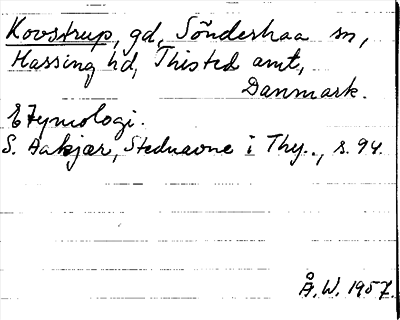 Kovstrup, gd, Sönderhaa sn,
Hassing hd, Thisted amt,
Danmark.
Etymologi.
S. Aakjær, Stednavne i Thy.., s. 94.
Å.W. 1957.